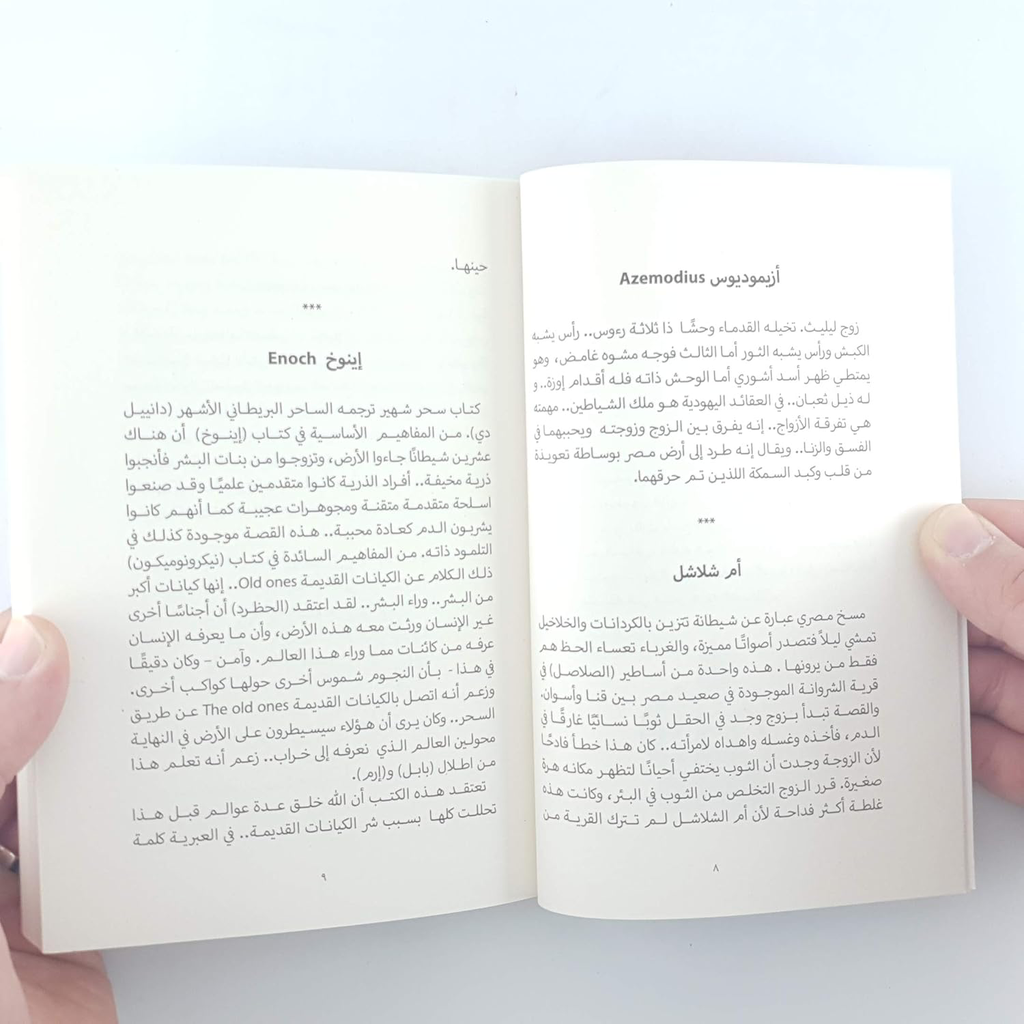 أزيموديوس Azemodius
زوج ليليث. تخيله القدماء وحشًا ذا ثلاثة رءوس.. رأس يشبه
الكبش ورأس يشبه الثور أما الثالث فوجه مشوه غامض، وهو
يمتطي ظهر أسد أشوري أما الوحش ذاته فله أقدام إوزة.. و
له ذيل ثعبان.. في العقائد اليهودية هو ملك الشياطين.. مهمته
هي تفرقة الأزواج.. إنه يفرق بين الزوج وزوجته ويحببهما في
الفسق والزنا.. ويقال إنه طرد إلى أرض مصر بوساطة تعويذة
من قلب وكبد السمكة اللذين تم حرقهما.
***
أم شلاشل
مسخ مصري عبارة عن شيطانة تتزين بالكردانات والخلاخيل
تمشي ليلاً فتصدر أصواتًا مميزة، والغرباء تعساء الحظ هم
فقط من يرونها . هذه واحدة من أساطير (الصلاصل) في
قرية الشروانة الموجودة في صعيد مصر بين قنا وأسوان،
والقصة تبدأ بزوج وجد في الحقل ثوبًا نسائيًا غارقًا في
الدم، فأخذه وغسله واهداه لامرأته.. كان هذا خطأ فادحًا
لأن الزوجة وجدت أن الثوب يختفي أحيانًا لتظهر مكانه هرة
صغيرة. قرر الزوج التخلص من الثوب في البئر، وكانت هذه
غلطة أكثر فداحة لأن أم الشلاشل لم تترك القرية من
٨
حينها.
***
إينوخ Enoch
كتاب سحر شهير ترجمه الساحر البريطاني الأشهر (دانييل
دي). من المفاهيم الأساسية في كتاب (إينوخ) أن هناك
عشرين شيطانًا جاءوا الأرض، وتزوجوا من بنات البشر فأنجبوا
ذرية مخيفة.. أفراد الذرية كانوا متقدمين علميًا وقد صنعوا
اسلحة متقدمة متقنة ومجوهرات عجيبة كما أنهم كانوا
يشربون الدم كعادة محببة.. هذه القصة موجودة كذلك في
التلمود ذاته. من المفاهيم السائدة في كتاب (نيكرونوميكون)
ذلك الكلام عن الكيانات القديمة Old ones.. إنها كيانات أكبر
من البشر.. وراء البشر.. لقد اعتقد (الحظرد) أن أجناسًا أخرى
غير الإنسان ورثت معه هذه الأرض، وأن ما يعرفه الإنسان
عرفه من كائنات مما وراء هذا العالم. وآمن – وكان دقيقًا
في هذا - بأن النجوم شموس أخرى حولها كواكب أخرى.
وزعم أنه اتصل بالكيانات القديمة The old ones عن طريق
السحر.. وكان يرى أن هؤلاء سيسيطرون على الأرض في النهاية
محولين العالم الذي نعرفه إلى خراب.. زعم أنه تعلم هذا
من اطلال (بابل) و(إرم).
تعتقد هذه الكتب أن الله خلق عدة عوالم قبل هذا
تحللت كلها بسبب شر الكيانات القديمة.. في العبرية كلمة
٩